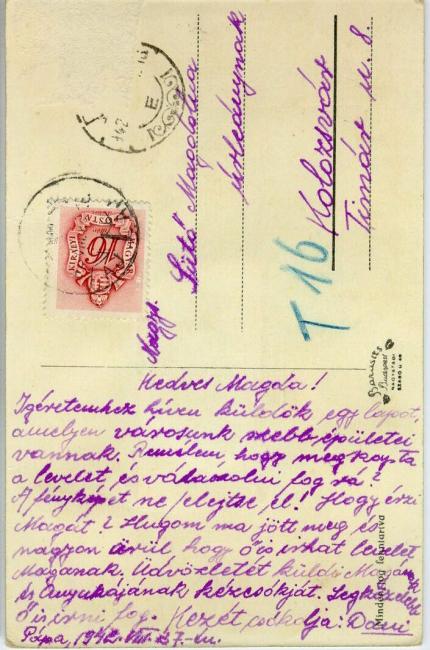 Nagys.
Sütő Magdolna
úrleánynak
Kolozsvár
Timár u. 8.
T 16
MAGYAR KIRÁLYI POSTA
16
942
E
Barasits
Budapest
SZABÓ U 48
Minden jog fenntartva
Kedves Magda!
Igéretemhez híven küldök egy lapot,
amelyen városunk szebb épületei
vannak. Remélem hogy megkapta
a levelet és válaszolni fog rá?
A fényképet ne felejtse el! Hogy érzi
Magát? Hugom ma jött meg és
nagyon örül hogy ő is írhat levelet
Magának. Üdvözletét küldi Magának
és Anyukájának kézcsókját. Legközelebb
Ő is írni fog. Kezét csókolja: Dani
Pápa, 1942. VIII. 27-én.